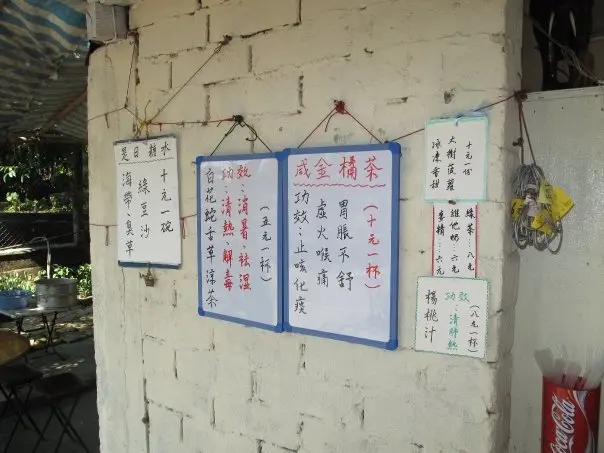 是日糖水
海帶、臭草
綠豆沙
十元一碗
白花蛇舌草涼茶
功效:清熱、解毒
消暑祛湿
(五元一杯)
咸金橘茶
功效:止咳化痰
虛火喉痛
胃脹不舒
(十元一杯)
十元一份
大樹菠蘿
冰凍香甜
綠茶…八元
維他奶 六元
麥精…六元
楊桃汁
功效:清肺熱
(八元一杯)
Coca-Cola